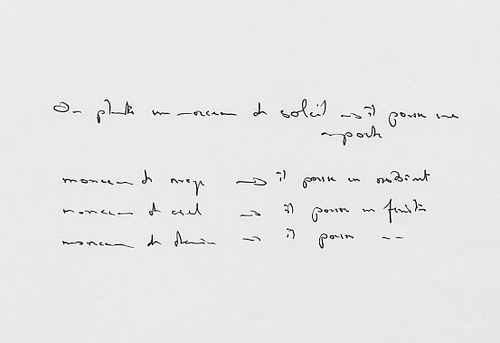 On plante un morceau de soleil → il pousse une
porte
morceau de nuage → il pousse un
morceau de ciel → il pousse un
morceau de → il pousse --